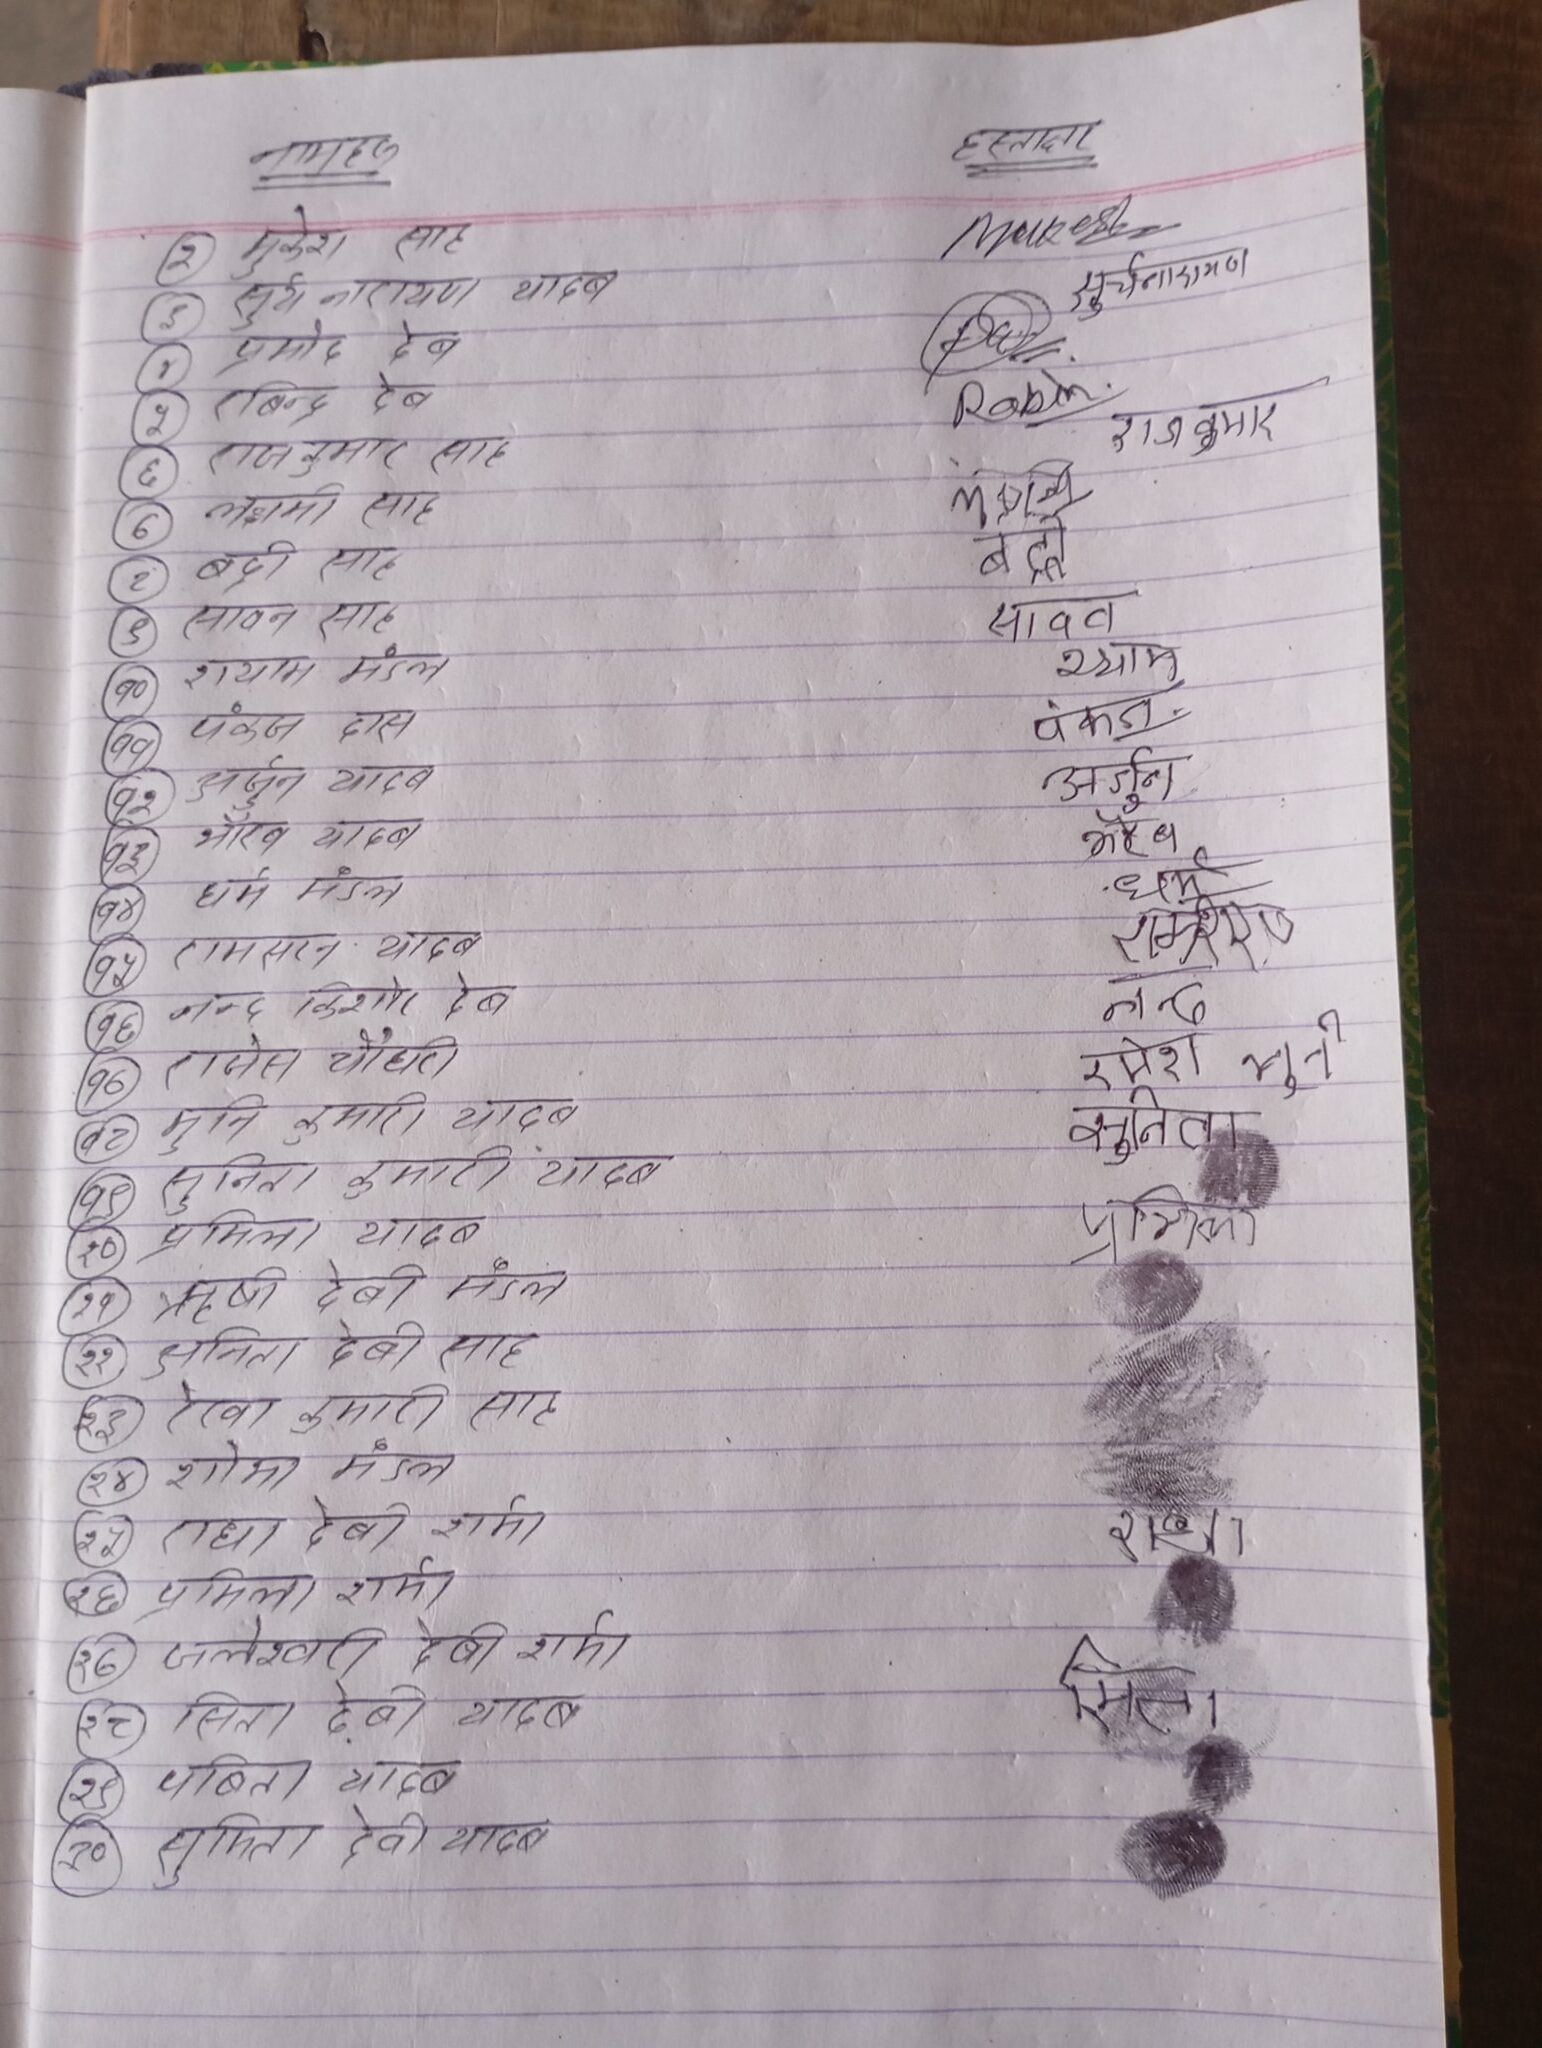 नामहरु हस्ताक्षर
२ मुकेश साह Mukesh
३ सुर्य नारायण यादब सुर्यनारायण
४ प्रमोद देब
५ रबिन्द्र देब Robin.
६ राजकुमार साह राजकुमार
७ लक्ष्मी साह
८ बद्री साह बद्री
९ सावन साह सावन
१० शयाम मंडल श्याम
११ पंकज दास पंकज
१२ अर्जुन यादब अर्जुन
१३ भौरब यादब भैरब
१४ धर्म मंडल धर्म
१५ रामसरन यादब
१६ नन्द किशोर देब नन्द
१७ रामेस चौधरी रमेश
१८ मुनि कुमारी यादब मुनी
१९ सुनिता कुमारी यादब सुनिता
२० प्रमिला यादब प्रमिला
२१ ऋषी देबी मंडल
२२ अनिता देबी साह
२३ रेखा कुमारी साह
२४ शोभा मंडल
२५ राधा देबी शर्मा राधा
२६ प्रमिला शर्मा
२७ जलेश्वरी देबी शर्मा
२८ सिता देबी यादब सिता
२९ पबिता यादब
३० सुमिता देवी यादब